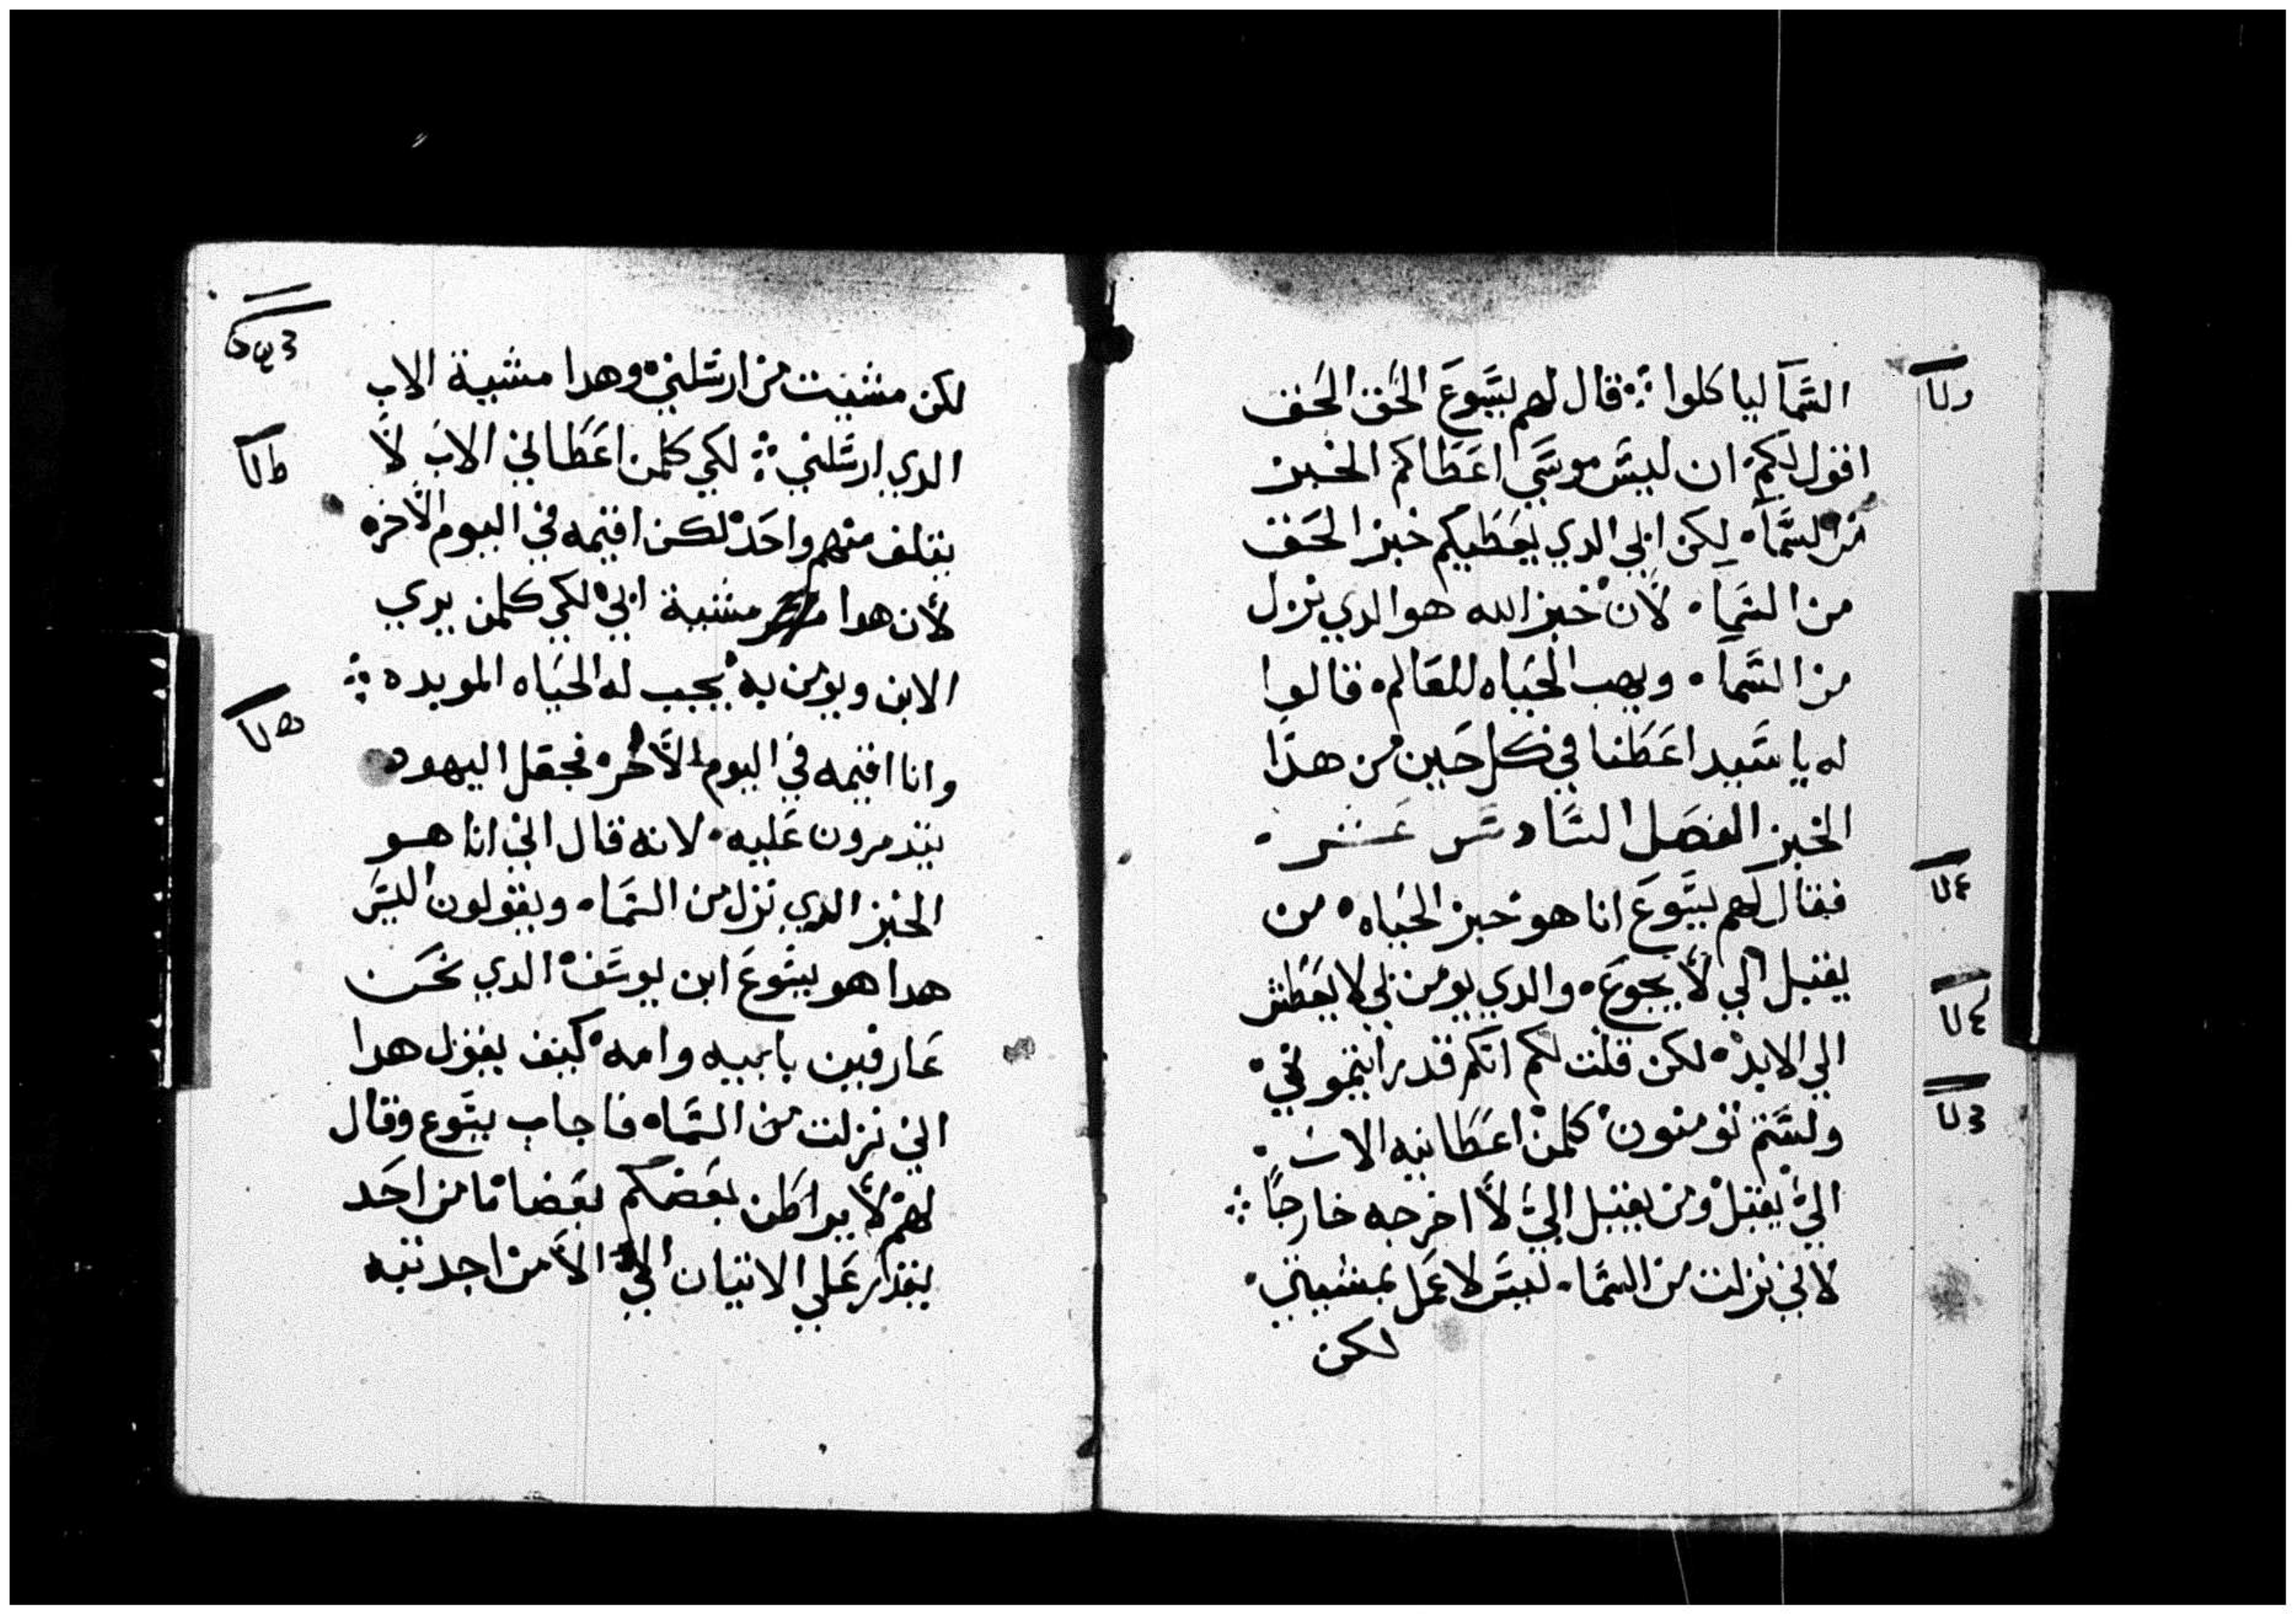 السَّمآ لياكلوا ⁘ قال لهم يسَوعَ الحَق الحَق
اقول لكم ان ليسَ موسَي اعَطَاكم الخبز
من السَّمآ • لكن ابي الدي يعَطَيكم خبز الحَق
من السَّمآ • لأن خبز الله هوالدي نزل
من السَّمآ • ويهب الحَياه للعَالم • قالوا
له يا سَيد اعَطَنا في كل حَين من هدَا
الخبز الفصَل السَّادسَ عَشر •
فقال لهم يسَوعَ انا هو خبز الحَياه • من
يقبل الي لأ يجوعَ • والدي يومن بي لا يعَطَش
الي الابد • لكن قلت لكم انكم قد رايتموني •
ولسَتم تومنون كلمن اعَطَانيه الاب •
الي يقبل ومن يقبل الي لأ اخرجه خارجًا ⁘
لاني نزلت من السَّما • ليسَ لاعَمل بمشيتي •
لكن
لكن مشيت من ارسَلني • وهدا مشية الاب
الدي ارسَلني ⁘ لكي كلمن اعَطَاني الاب لأ
يتلف منهم واحَد لكن اقيمه في اليوم الأخره
لأن هدا مشية ابي لكي كلمن يري
الابن ويومن به يجب له الحَياه المويده ⁘
وانا اقيمه في اليوم الأخر • فجعَل اليهود
يتدمرون عَليه • لانه قال اني انا هو
الخبز الدي نزل من السَّما • ويقولون اليسَ
هدا هو يسَوعَ ابن يوسَف الدي نحَن
عَارفين بابيه وامه • كيف يقول هدا
اني نزلت من السَّما • فاجاب يسَوع وقال
لهم لأ يراطَن بعَضكم بعَضا ما من احَد
يقدر عَلي الاتيان الي الأ من اجدتبه